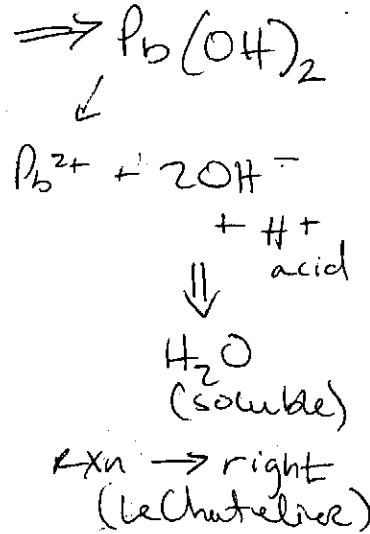 ⇒ Pb(OH)₂
↙
Pb²⁺ + 2OH⁻
+ H⁺
acid
⇓
H₂O
(soluble)
rxn → right
(LeChatelier)